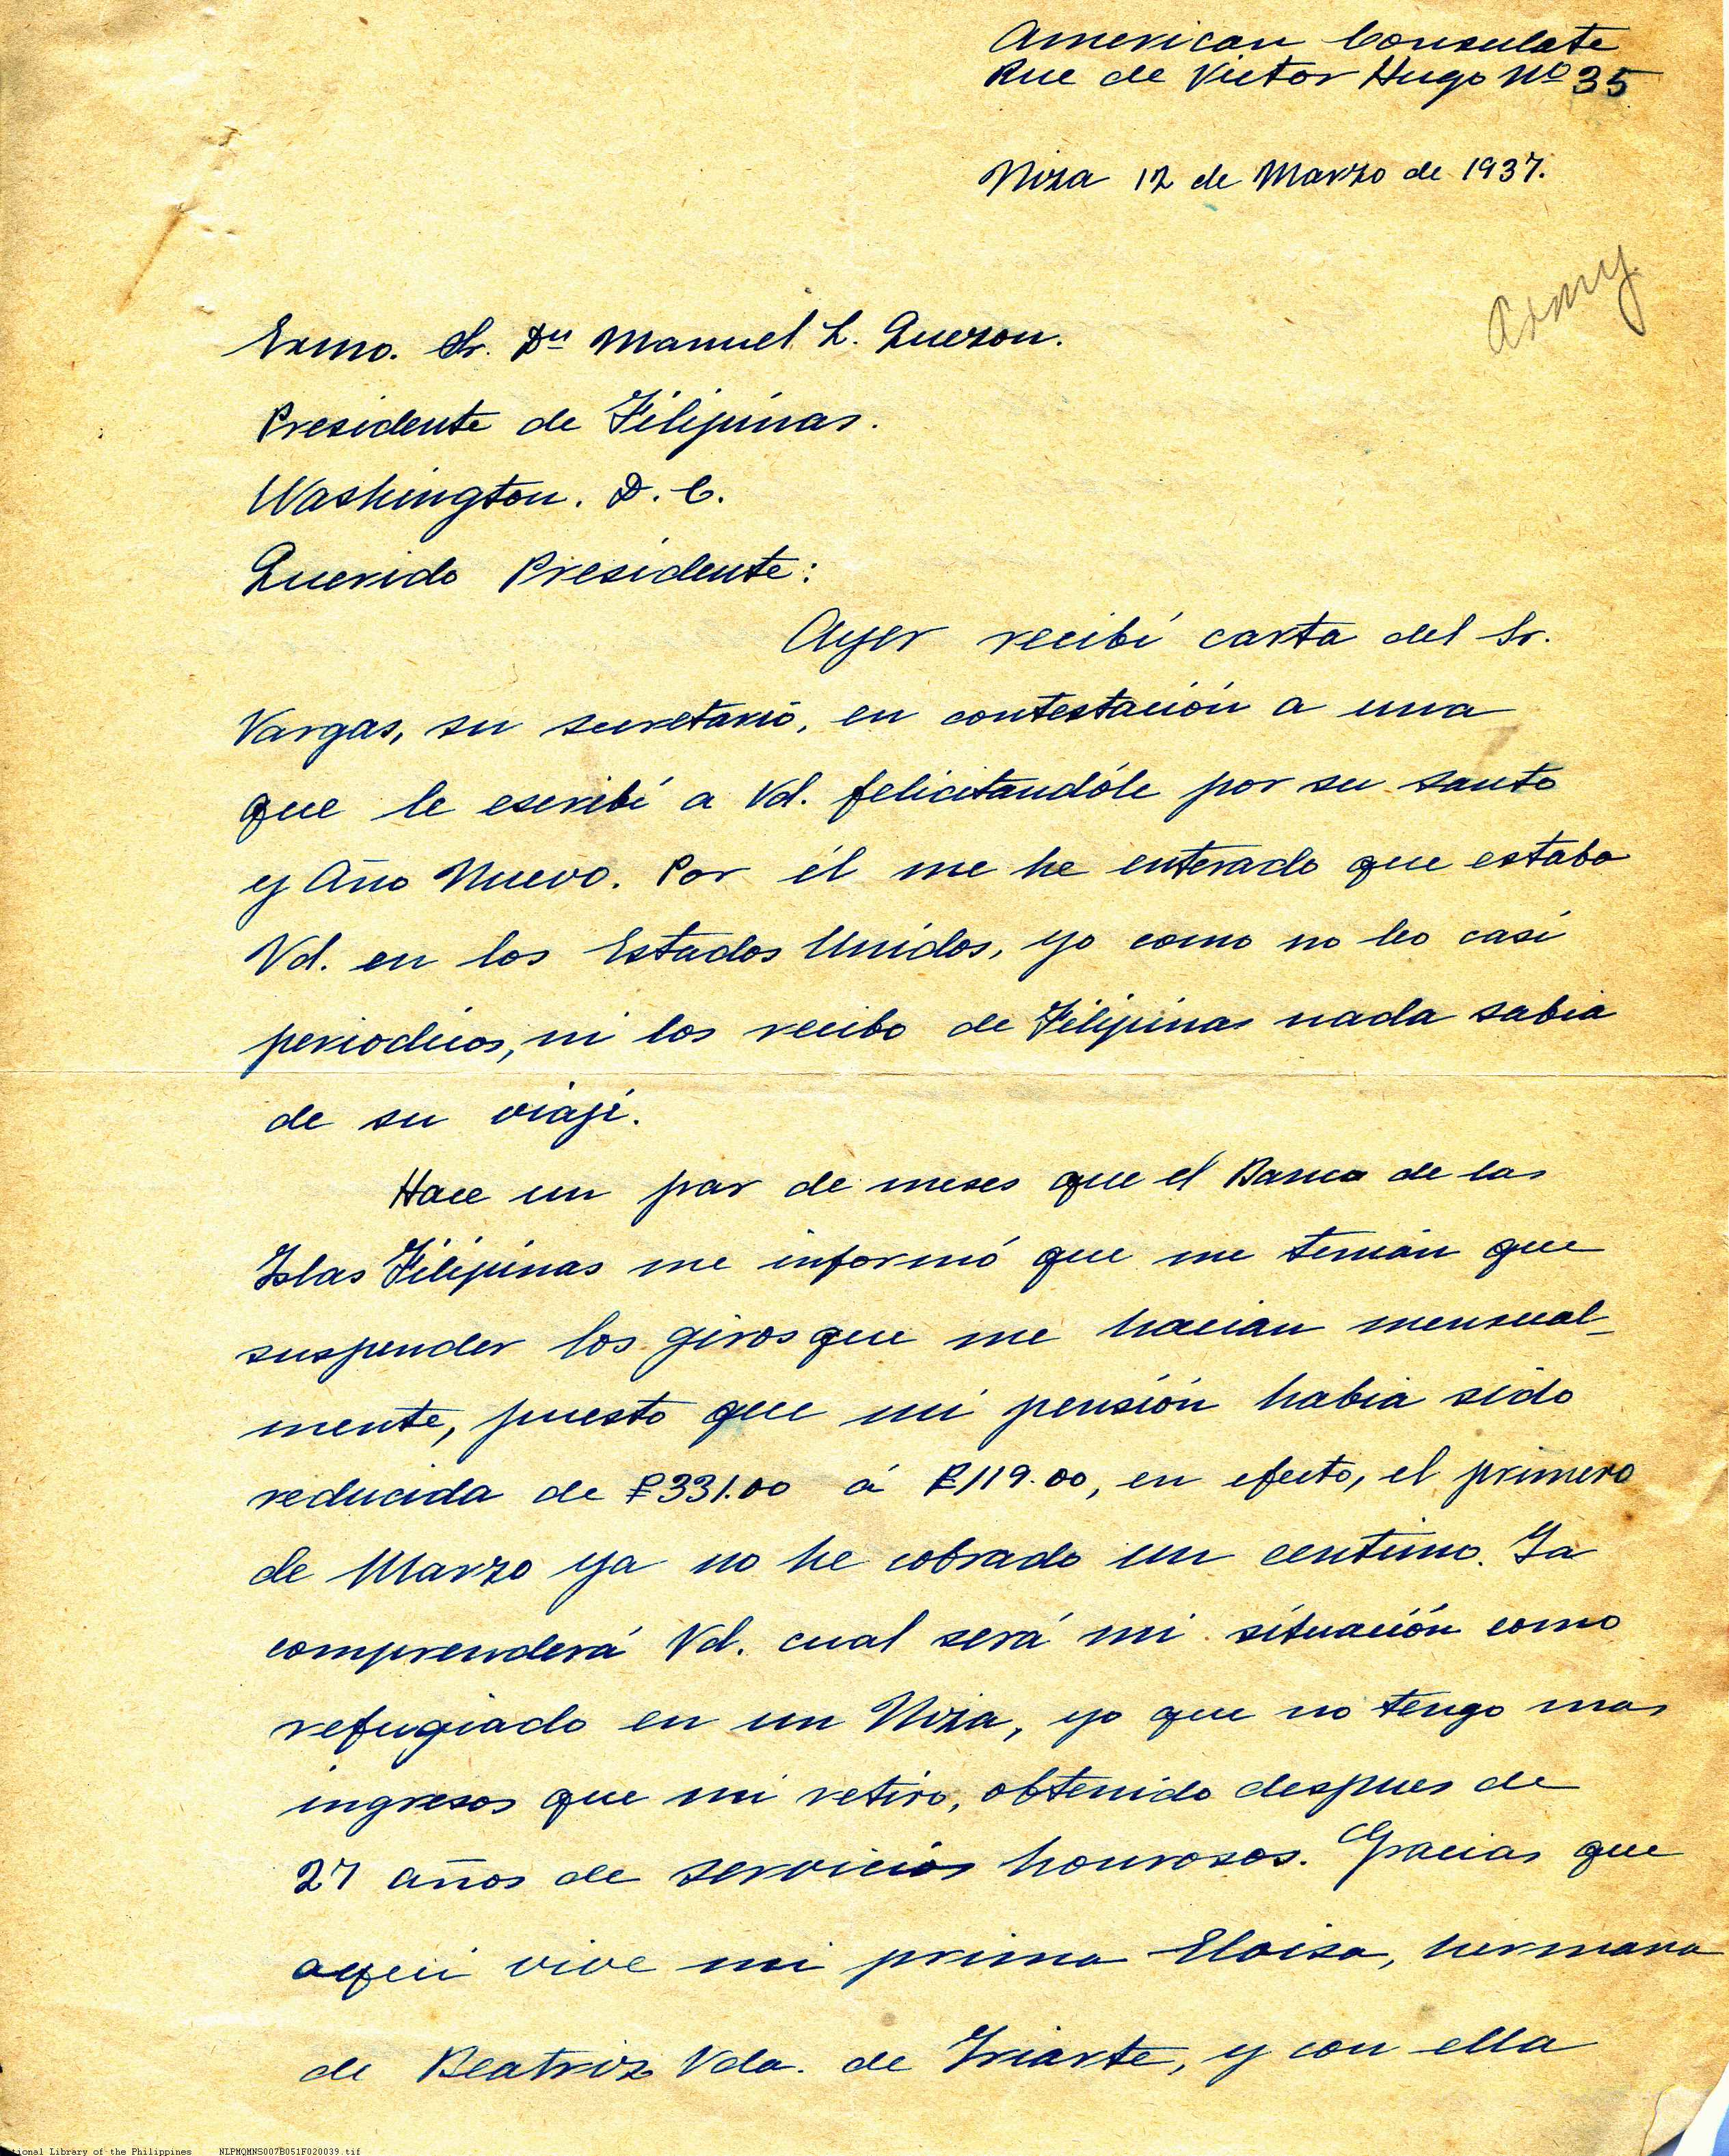 American Consulate
Rue de Victor Hugo Nº 35
Niza 12 de Marzo de 1937.
Army
Exmo. Sr. Dn Manuel L. Quezon.
Presidente de Filipinas.
Washington. D. C.
Querido Presidente:
Ayer recibí carta del Sr.
Vargas, su secretario, en contestación a una
que le escribí a Vd. felicitandóle por su santo
y Año Nuevo. Por él me he enterado que estaba
Vd. en los Estados Unidos, yo como no leo casi
periodicos, ni los recibo de Filipinas nada sabia
de su viaje.
Hace un par de meses que el Banco de las
Islas Filipinas me informó que me tenian que
suspender los giros que me hacian mensual-
mente, puesto que mi pensión habia sido
reducida de ₱331.00 á ₱119.00, en efecto, el primero
de Marzo ya no he cobrado un centimo. Ya
comprenderá Vd. cual será mi situación como
refugiado en un Niza, yo que no tengo mas
ingresos que mi retiro, obtenido despues de
27 años de servicios honrosos. Gracias que
aqui vive mi prima Eloisa, hermana
de Beatriz Vda. de Iriarte, y con ella
tional Library of the Philippines NLPMQMNS007B051F020039.tif